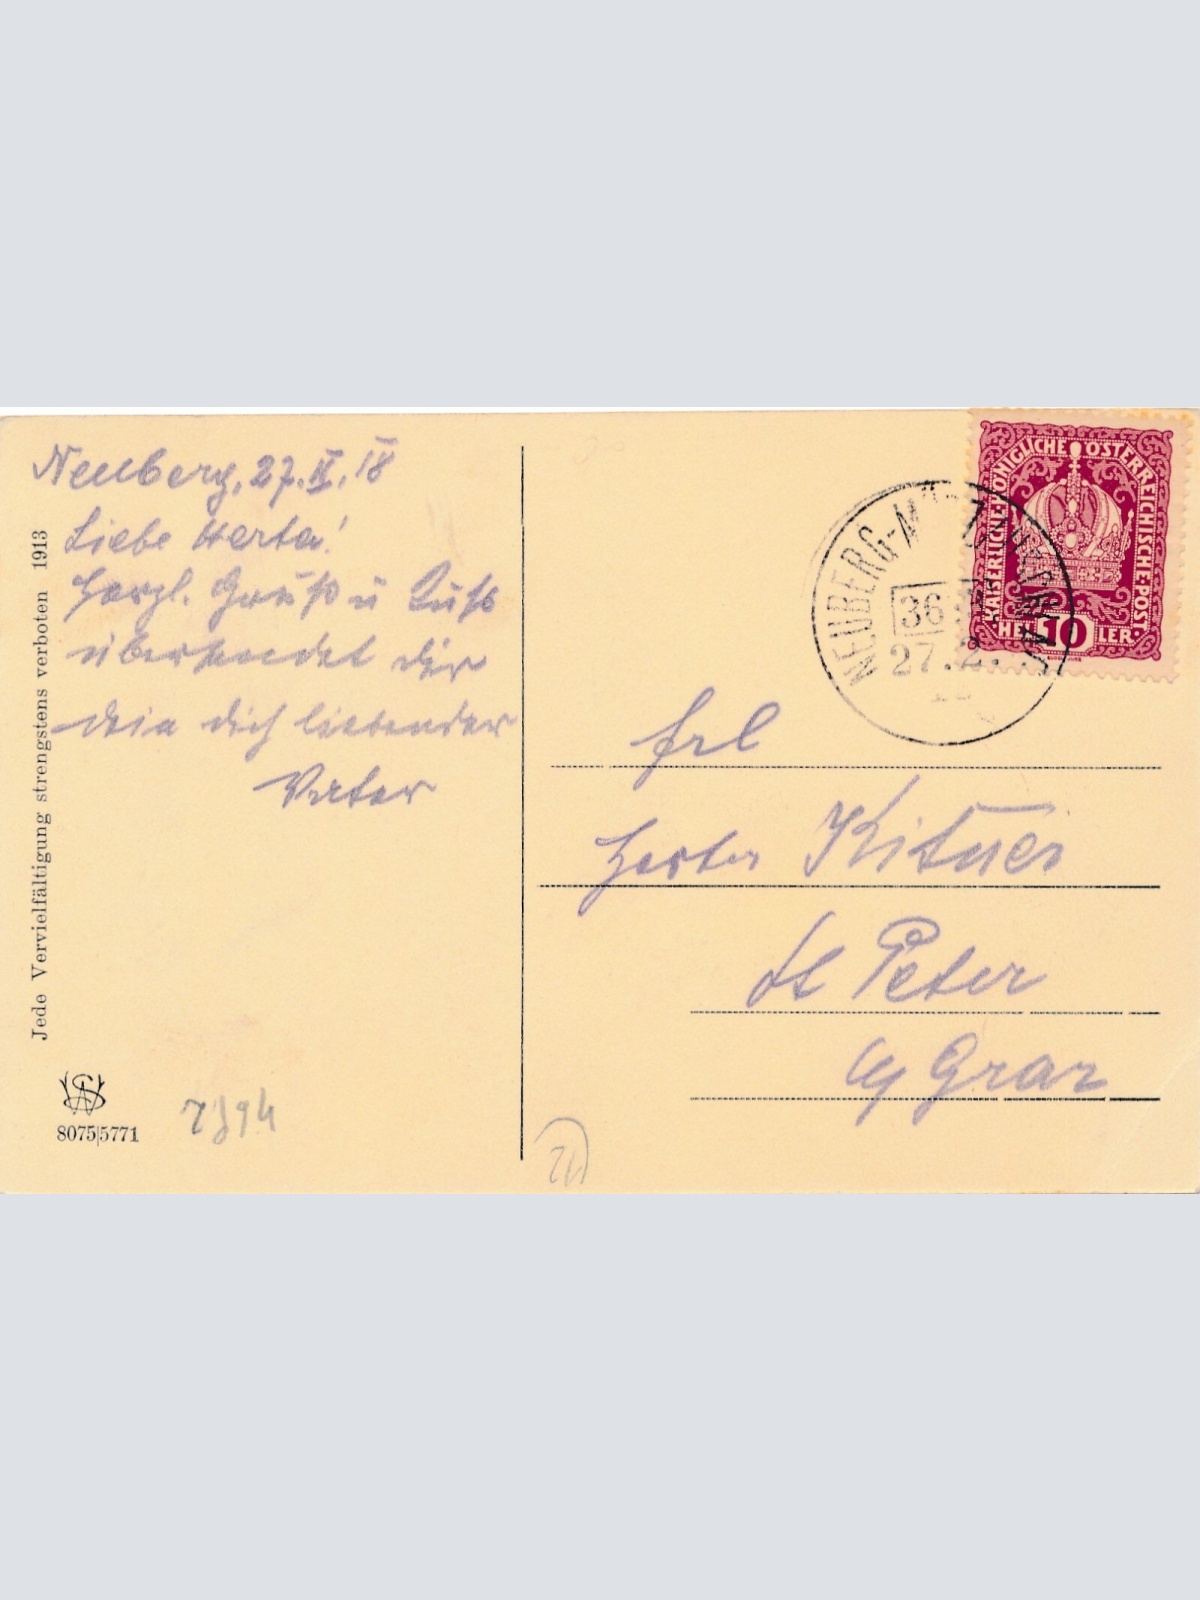 Neuberg, 27.II.18
Liebe Herta!
Herzl. Gruß u Kuss
übersendet dir
dein dich liebender
Vater
Jede Vervielfältigung strengstens verboten 1913
8075|5771
KAISERLICHE·KÖNIGLICHE ÖSTERREICHISCHE·POST
HEL 10 LER
NEUBERG-MÜRZZUSCHLAG
36
27.2.
Frl
Herta
St Peter
b/ Graz